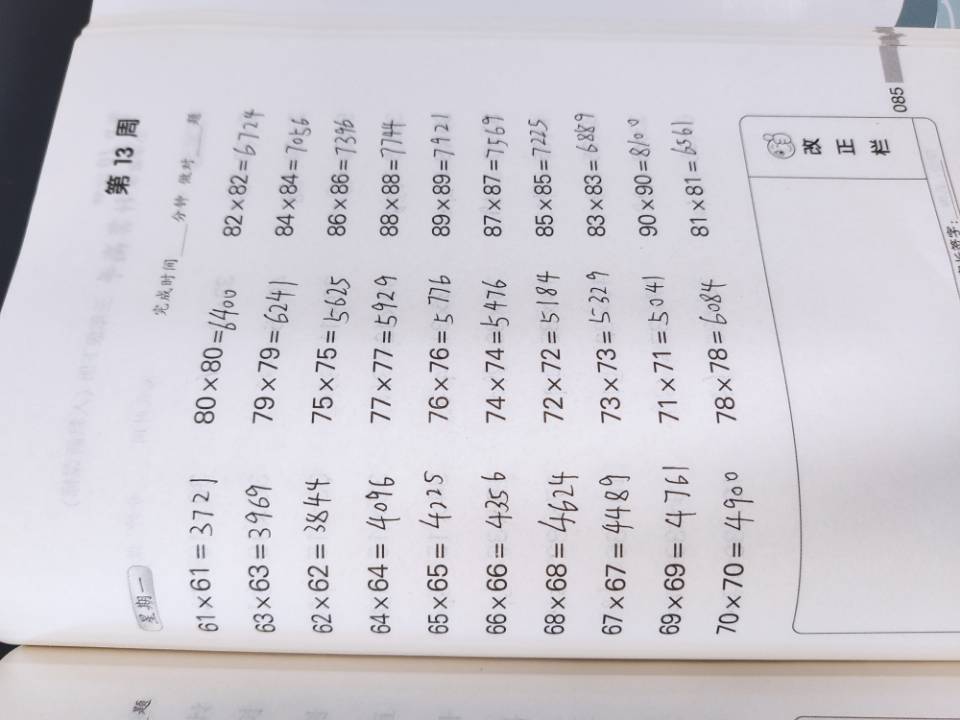 题
第 13 周
星期一
完成时间____分钟 做对____题
61×61=3721
63×63=3969
62×62=3844
64×64=4096
65×65=4225
66×66=4356
68×68=4624
67×67=4489
69×69=4761
70×70=4900
80×80=6400
79×79=6241
75×75=5625
77×77=5929
76×76=5776
74×74=5476
72×72=5184
73×73=5329
71×71=5041
78×78=6084
82×82=6724
84×84=7056
86×86=7396
88×88=7744
89×89=7921
87×87=7569
85×85=7225
83×83=6889
90×90=8100
81×81=6561
改正栏
085
长签字: